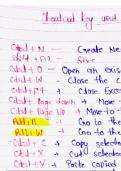 Shortcut key used
Ctrl + N — Create Ne
Shift + F12 — Save
Ctrl + O — Open an exis
Ctrl + W — Close the
Ctrl + F4 — Close Exce
Ctrl + Page down → Move
Ctrl + Page Up → Move to
Alt + — Go to the
Alt + — Go to the
Ctrl + C → Copy select
Ctrl + X → Cut select
Ctrl + V → Paste copied